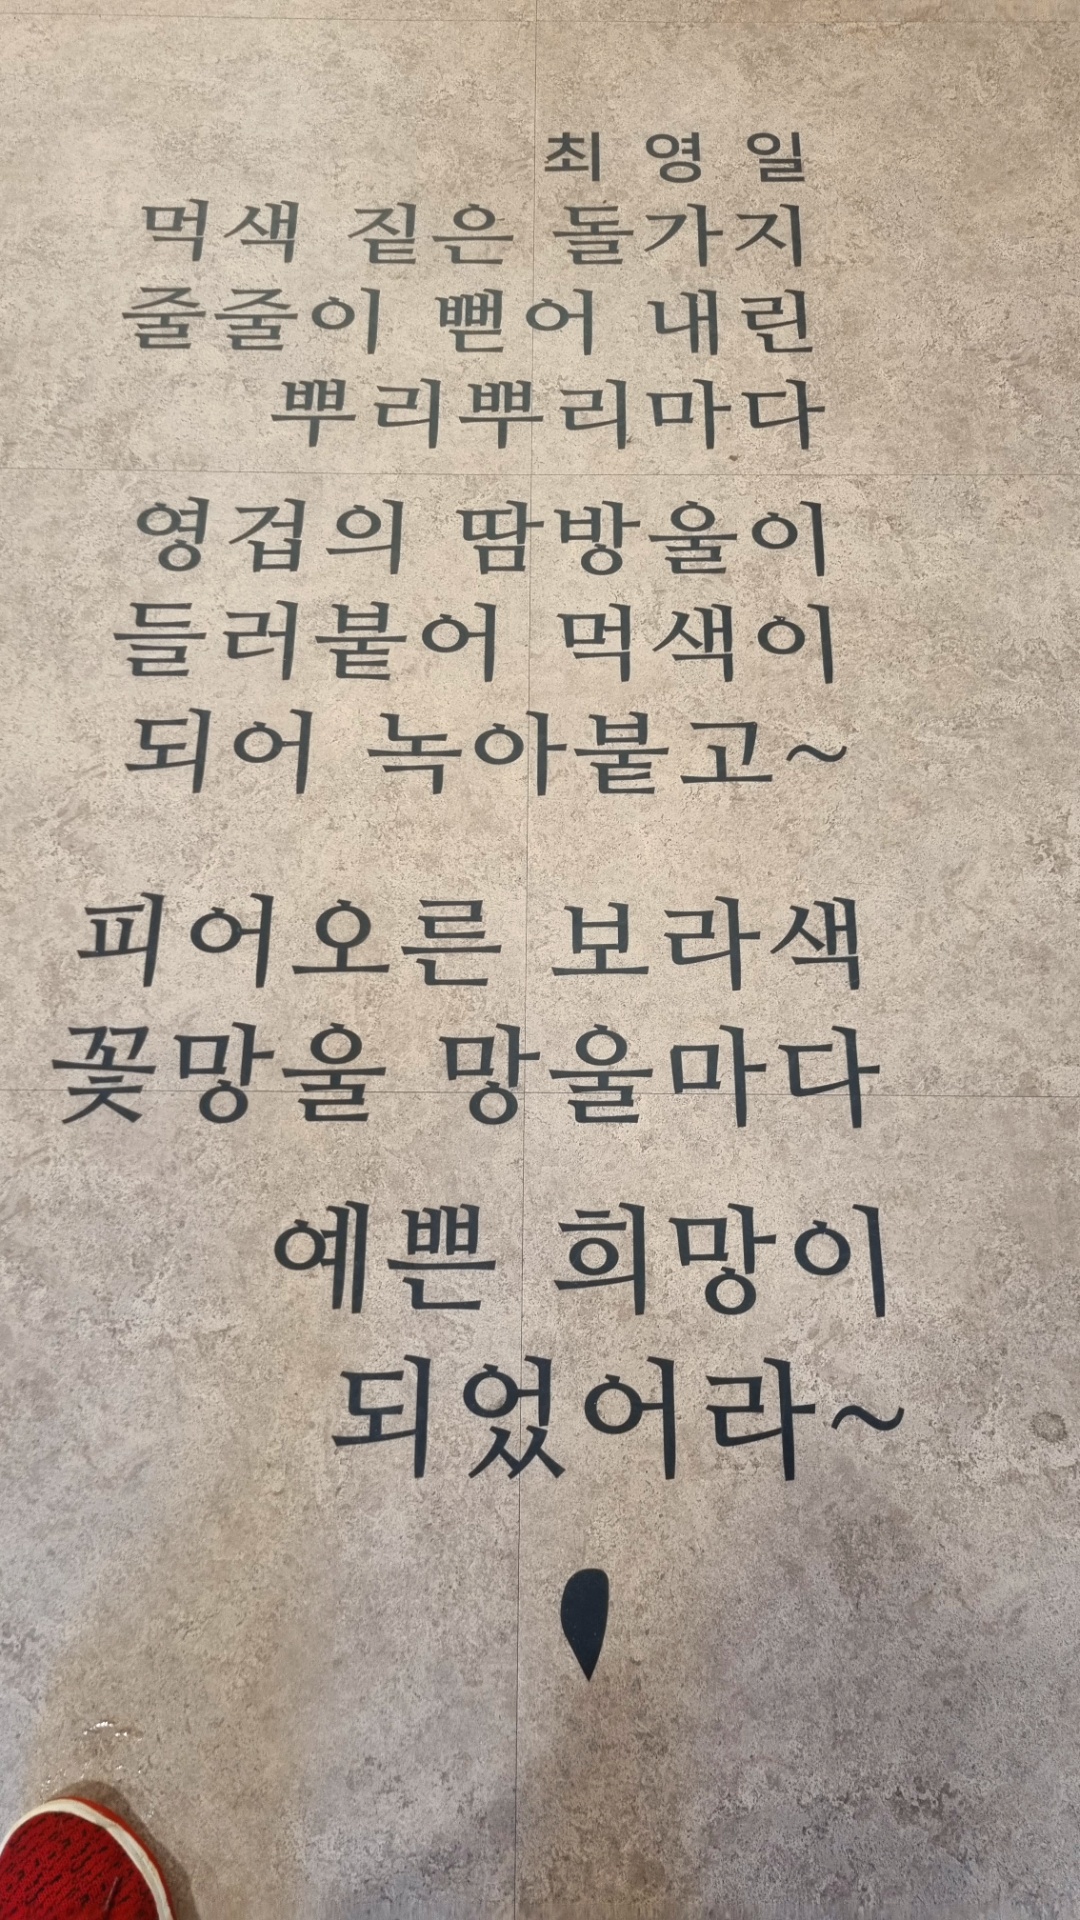 최 영 일
먹색 짙은 돌가지
줄줄이 뻗어 내린
뿌리뿌리마다
영겁의 땀방울이
들러붙어 먹색이
되어 녹아붙고~
피어오른 보라색
꽃망울 망울마다
예쁜 희망이
되었어라~